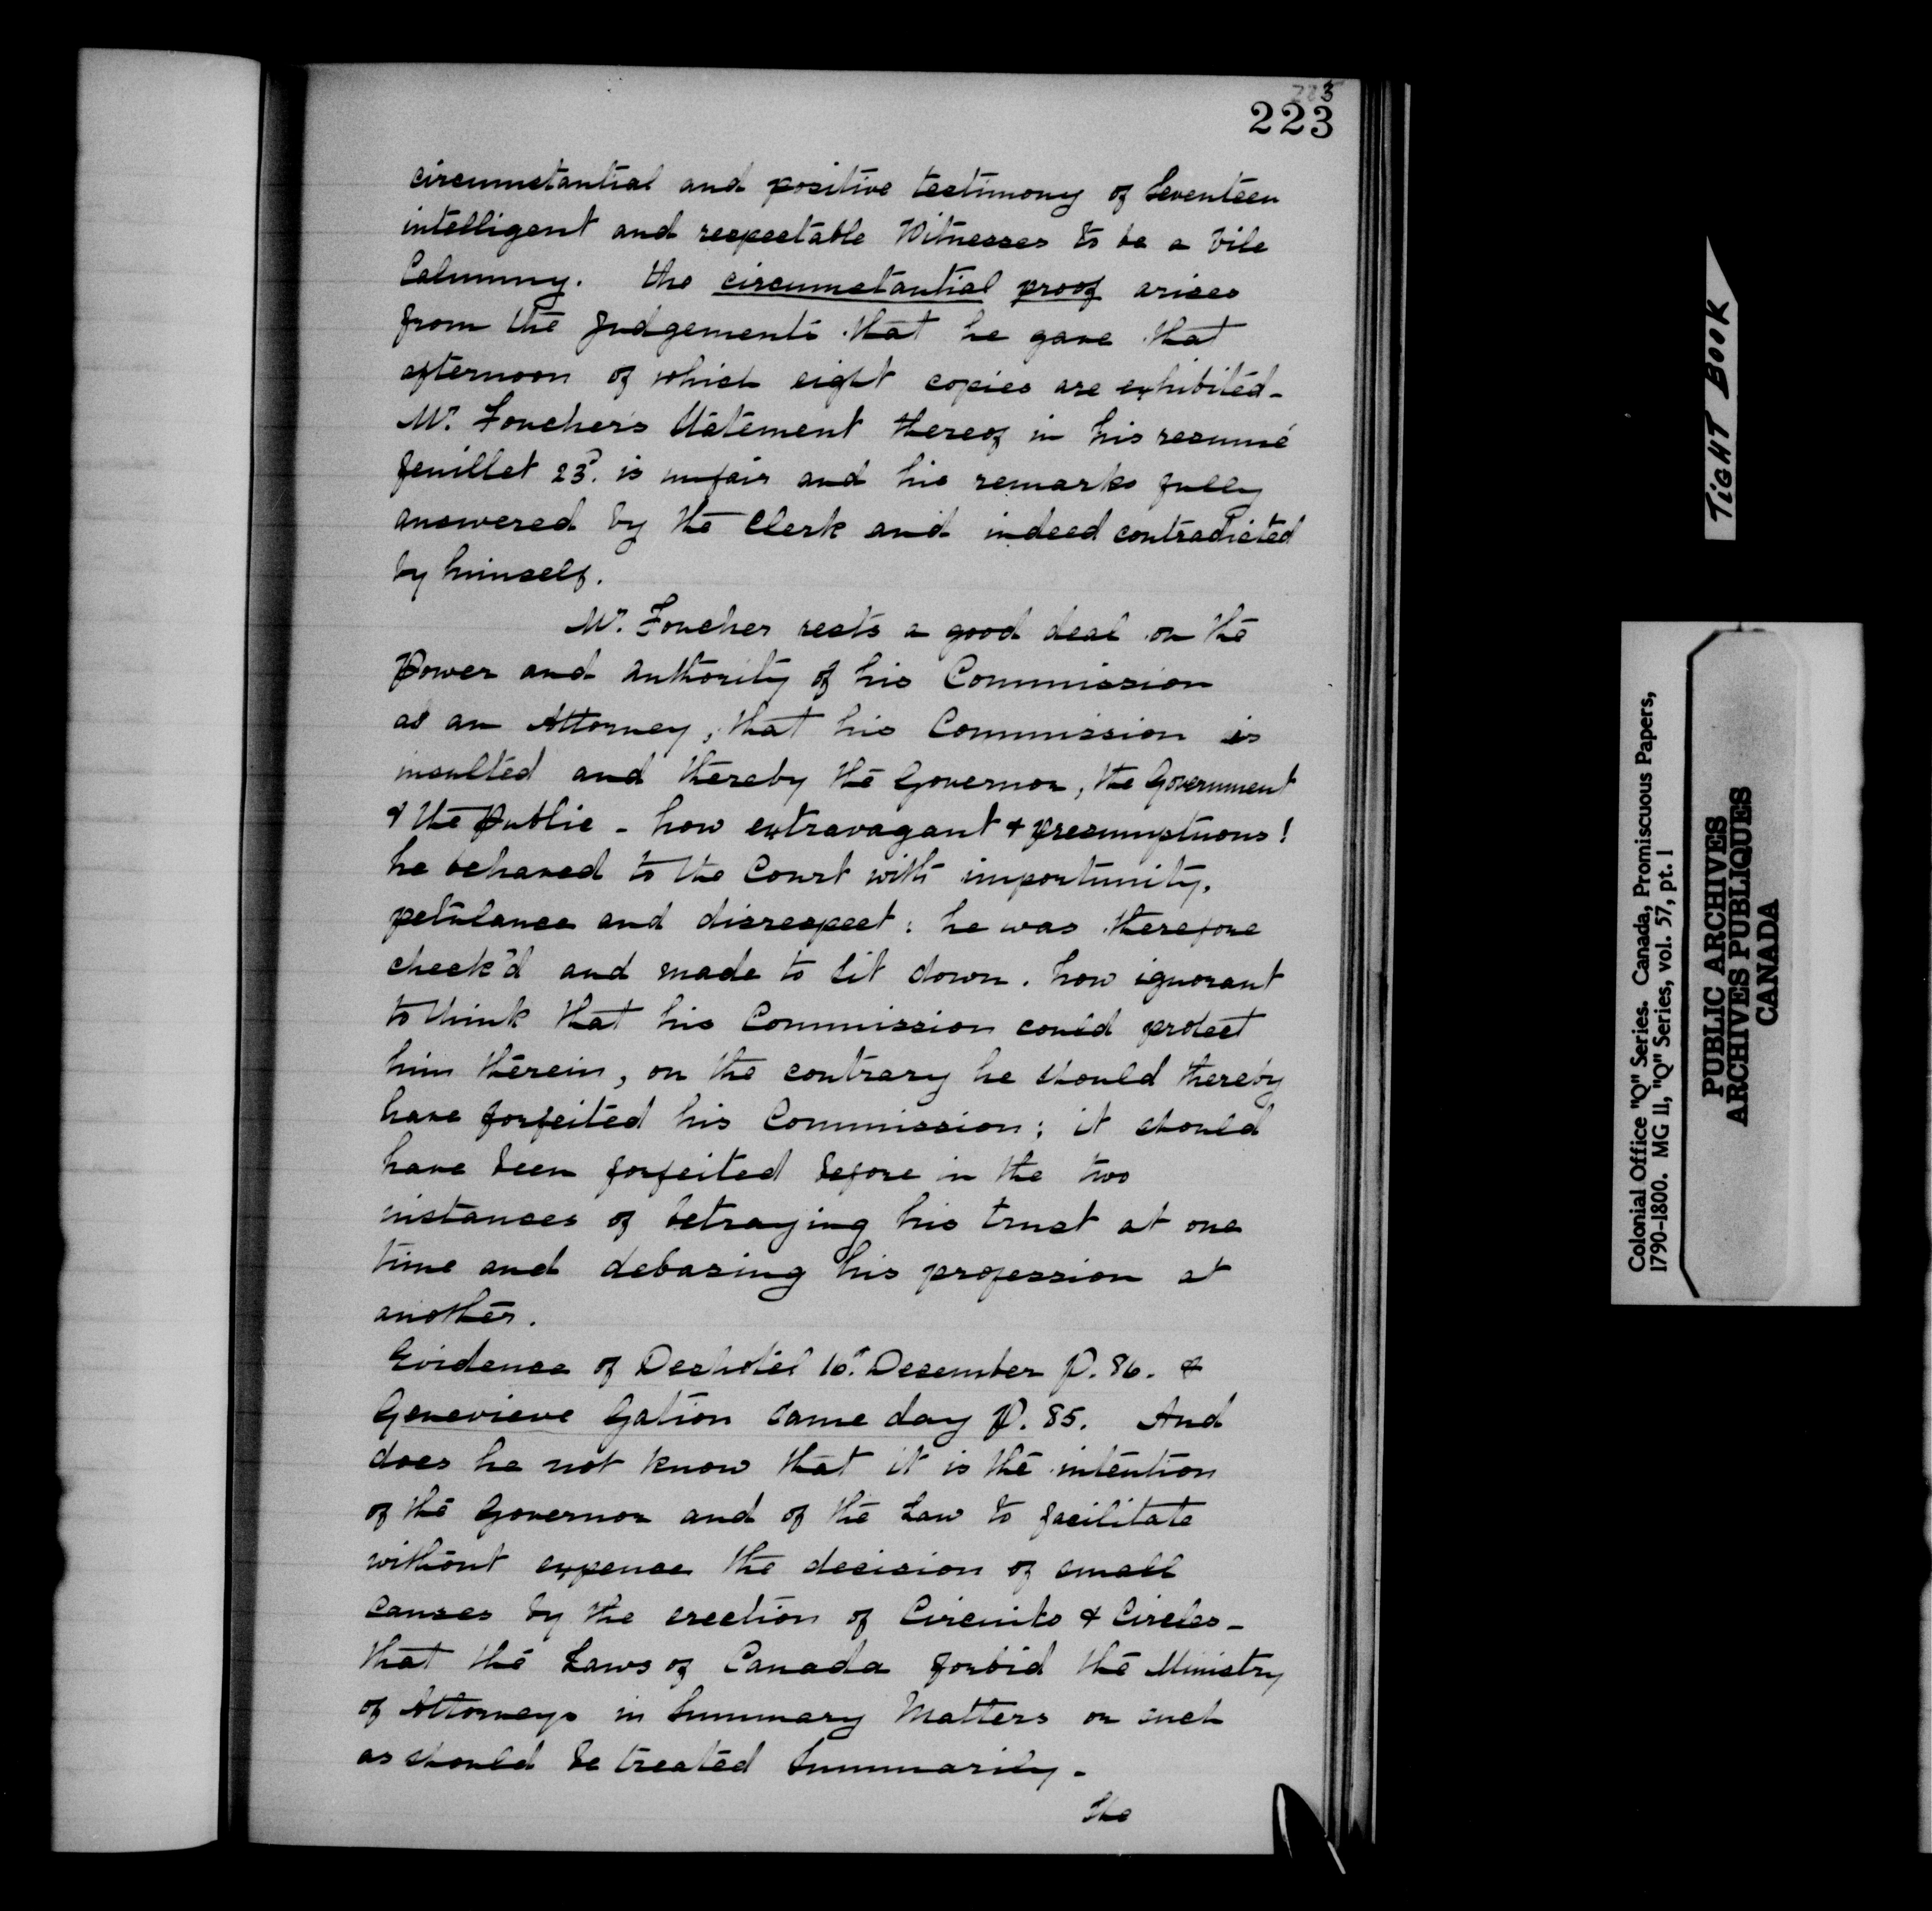 223
223
circumstantial and positive testimony of Seventeen
intelligent and respectable Witnesses to be a vile
Calumny. the circumstantial proof arises
from the Judgements that he gave that
afternoon of which eight copies are exhibited-
Mr. Foucher's Statement thereof in his resumé
feuillet 23d. is unfair and his remarks fully
answered by the Clerk and indeed contradicted
by himself.
Mr. Foucher rests a good deal on the
Power and authority of his Commission
as an Attorney, that his Commission is
insulted and thereby the Governor, the Government
& the Public - how extravagant & presumptuous!
he behaved to the Court with importunity,
petulance and disrespect: he was therefore
check'd and made to Sit down. how ignorant
to think that his Commission could protect
him therein, on the contrary he should thereby
have forfeited his Commission; it should
have been forfeited before in the two
instances of betraying his trust at one
time and debasing his profession at
another.
Evidence of Deshotel 16th. December P. 86. &
Genevieve Gation Same day P. 85. And
does he not know that it is the intention
of the Governor and of the Law to facilitate
without expence the decision of small
Causes by the erection of Circuits & Circles -
that the Laws of Canada forbid the Ministry
of Attorneys in Summary Matters or such
as should be treated Summarily -
The
TIGHT BOOK
Colonial Office "Q" Series. Canada, Promiscuous Papers,
1790-1800. MG 11, "Q" Series, vol. 57, pt. 1
PUBLIC ARCHIVES
ARCHIVES PUBLIQUES
CANADA